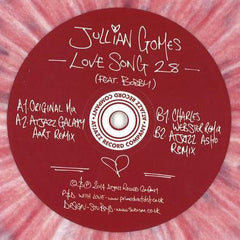 JULLIAN GOMES
LOVE SONG 28
(FEAT. BOBBY)
A1 ORIGINAL MIX
A2 ATJAZZ GALAXY
AART REMIX
B1 CHARLES
WEBSTER REMIX
B2 ATJAZZ ASTRO
REMIX
ATJAZZ RECORD COMPANY
© & ℗ 2014 ATJAZZ RECORD COMPANY
P&D WITH LOVE - www.primedirectdist.co.uk